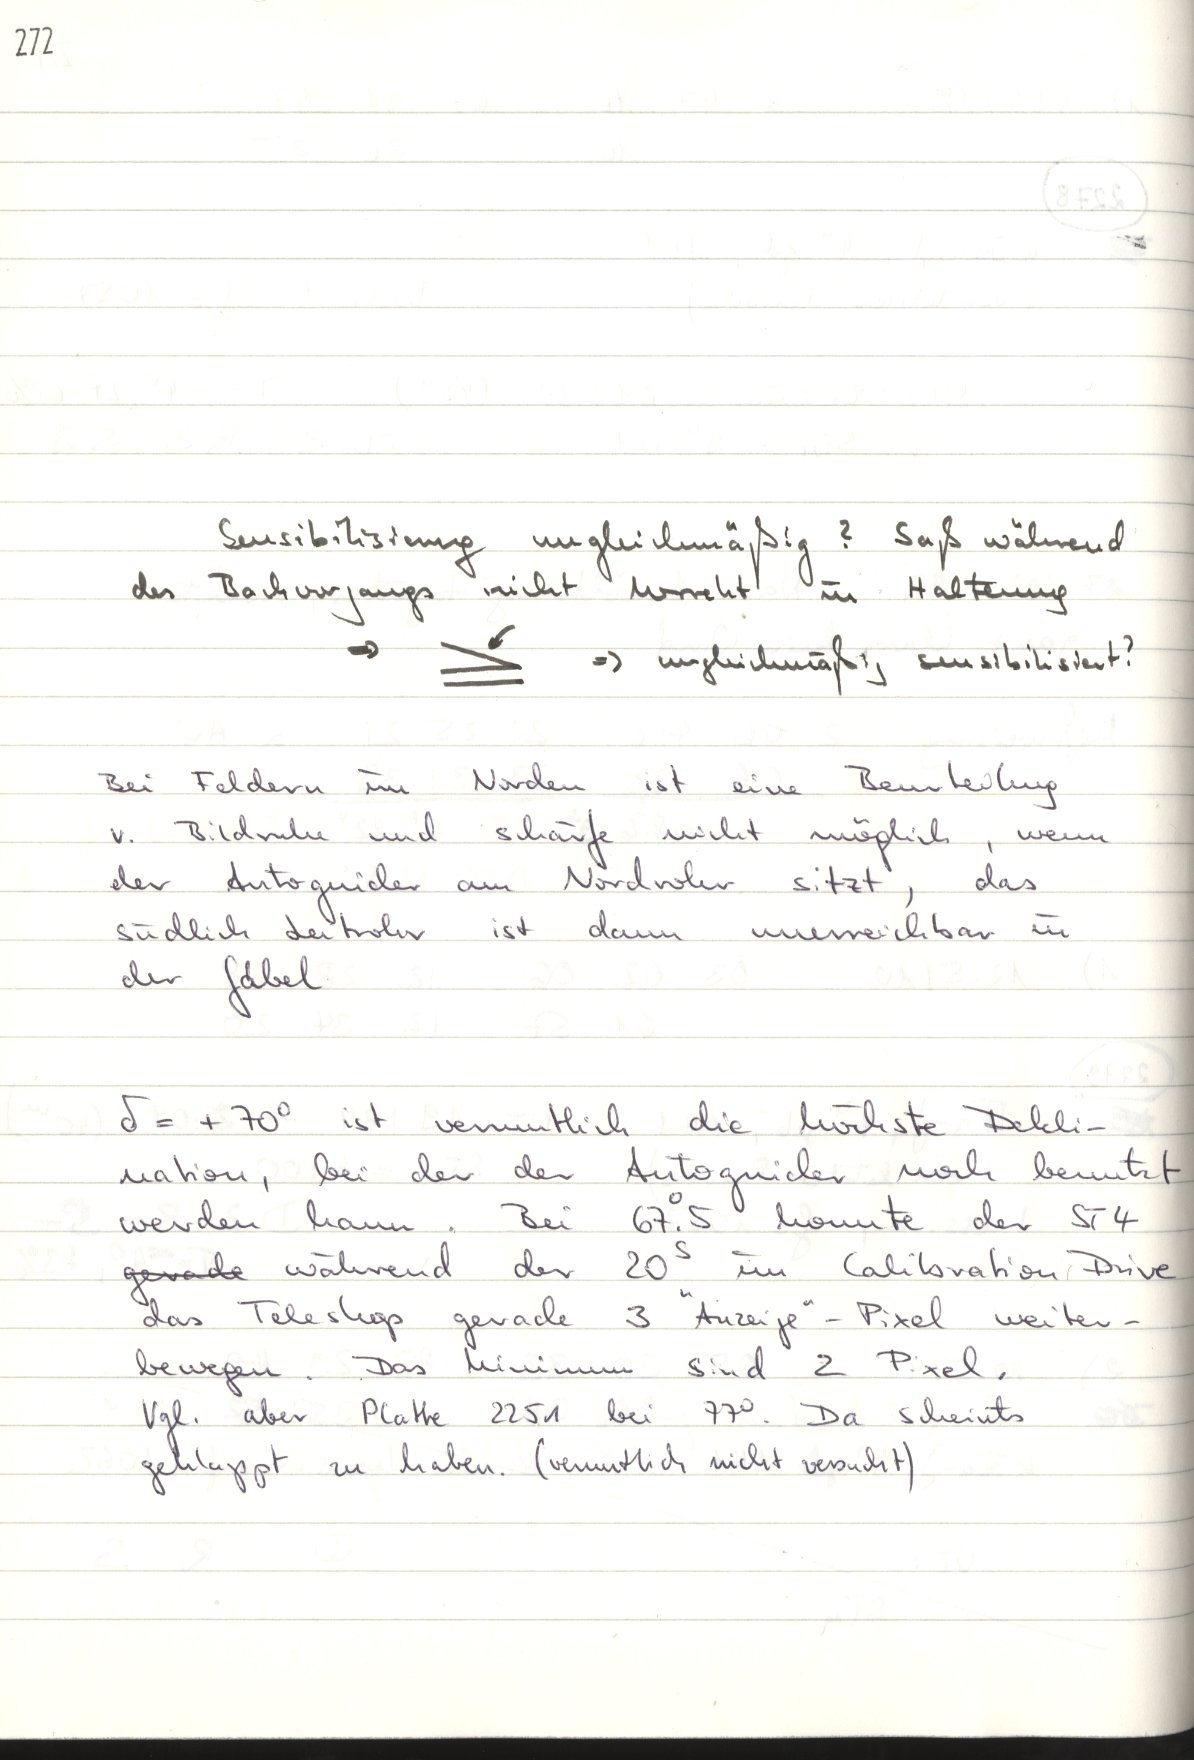 272
Sensibilisierung ungleichmäßig? Saß während
des Backvorgangs nicht korrekt in Halterung
⇒ ⇒ ungleichmäßig sensibilisiert?
Bei Feldern im Norden ist eine Beurteilung
v. Bildruhe und schärfe nicht möglich, wenn
der Autoguider am Nordrohr sitzt, das
südlich Leitrohr ist dann unerreichbar in
der Gabel
δ = + 70° ist vermutlich die höchste Dekli-
nation, bei der der Autoguider noch benutzt
werden kann. Bei 67°.5 konnte der ST4
gerade während der 20ˢ im Calibration Drive
das Teleskop gerade 3 "Anzeige"-Pixel weiter-
bewegen. Das Minimum sind 2 Pixel.
Vgl. aber Platte 2251 bei 77°. Da scheints
geklappt zu haben. (vermutlich nicht versucht)